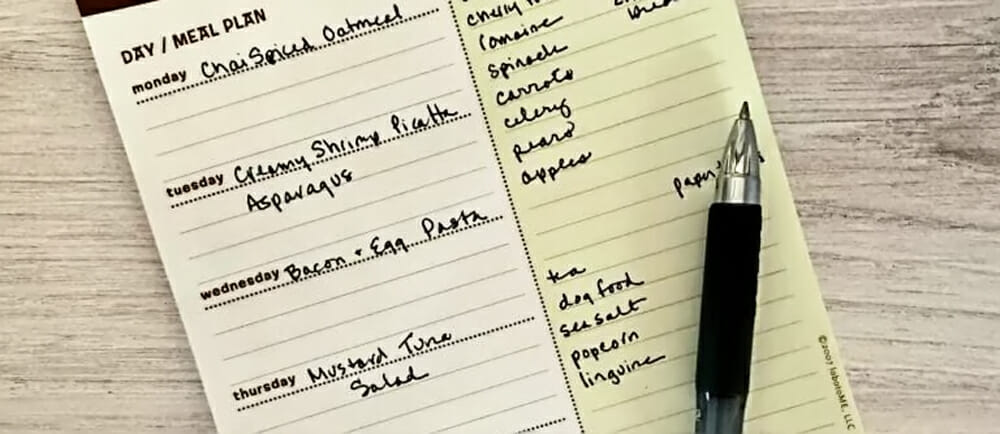 DAY / MEAL PLAN
monday Chai Spiced Oatmeal
tuesday Creamy Shrimp Picatta
Asparagus
wednesday Bacon + Egg Pasta
thursday Mustard Tuna
Salad
cherry
romaine
spinach
carrots
celery
pears
apples
tea
dog food
sea salt
popcorn
linguine
©2007 laboteME, LLC